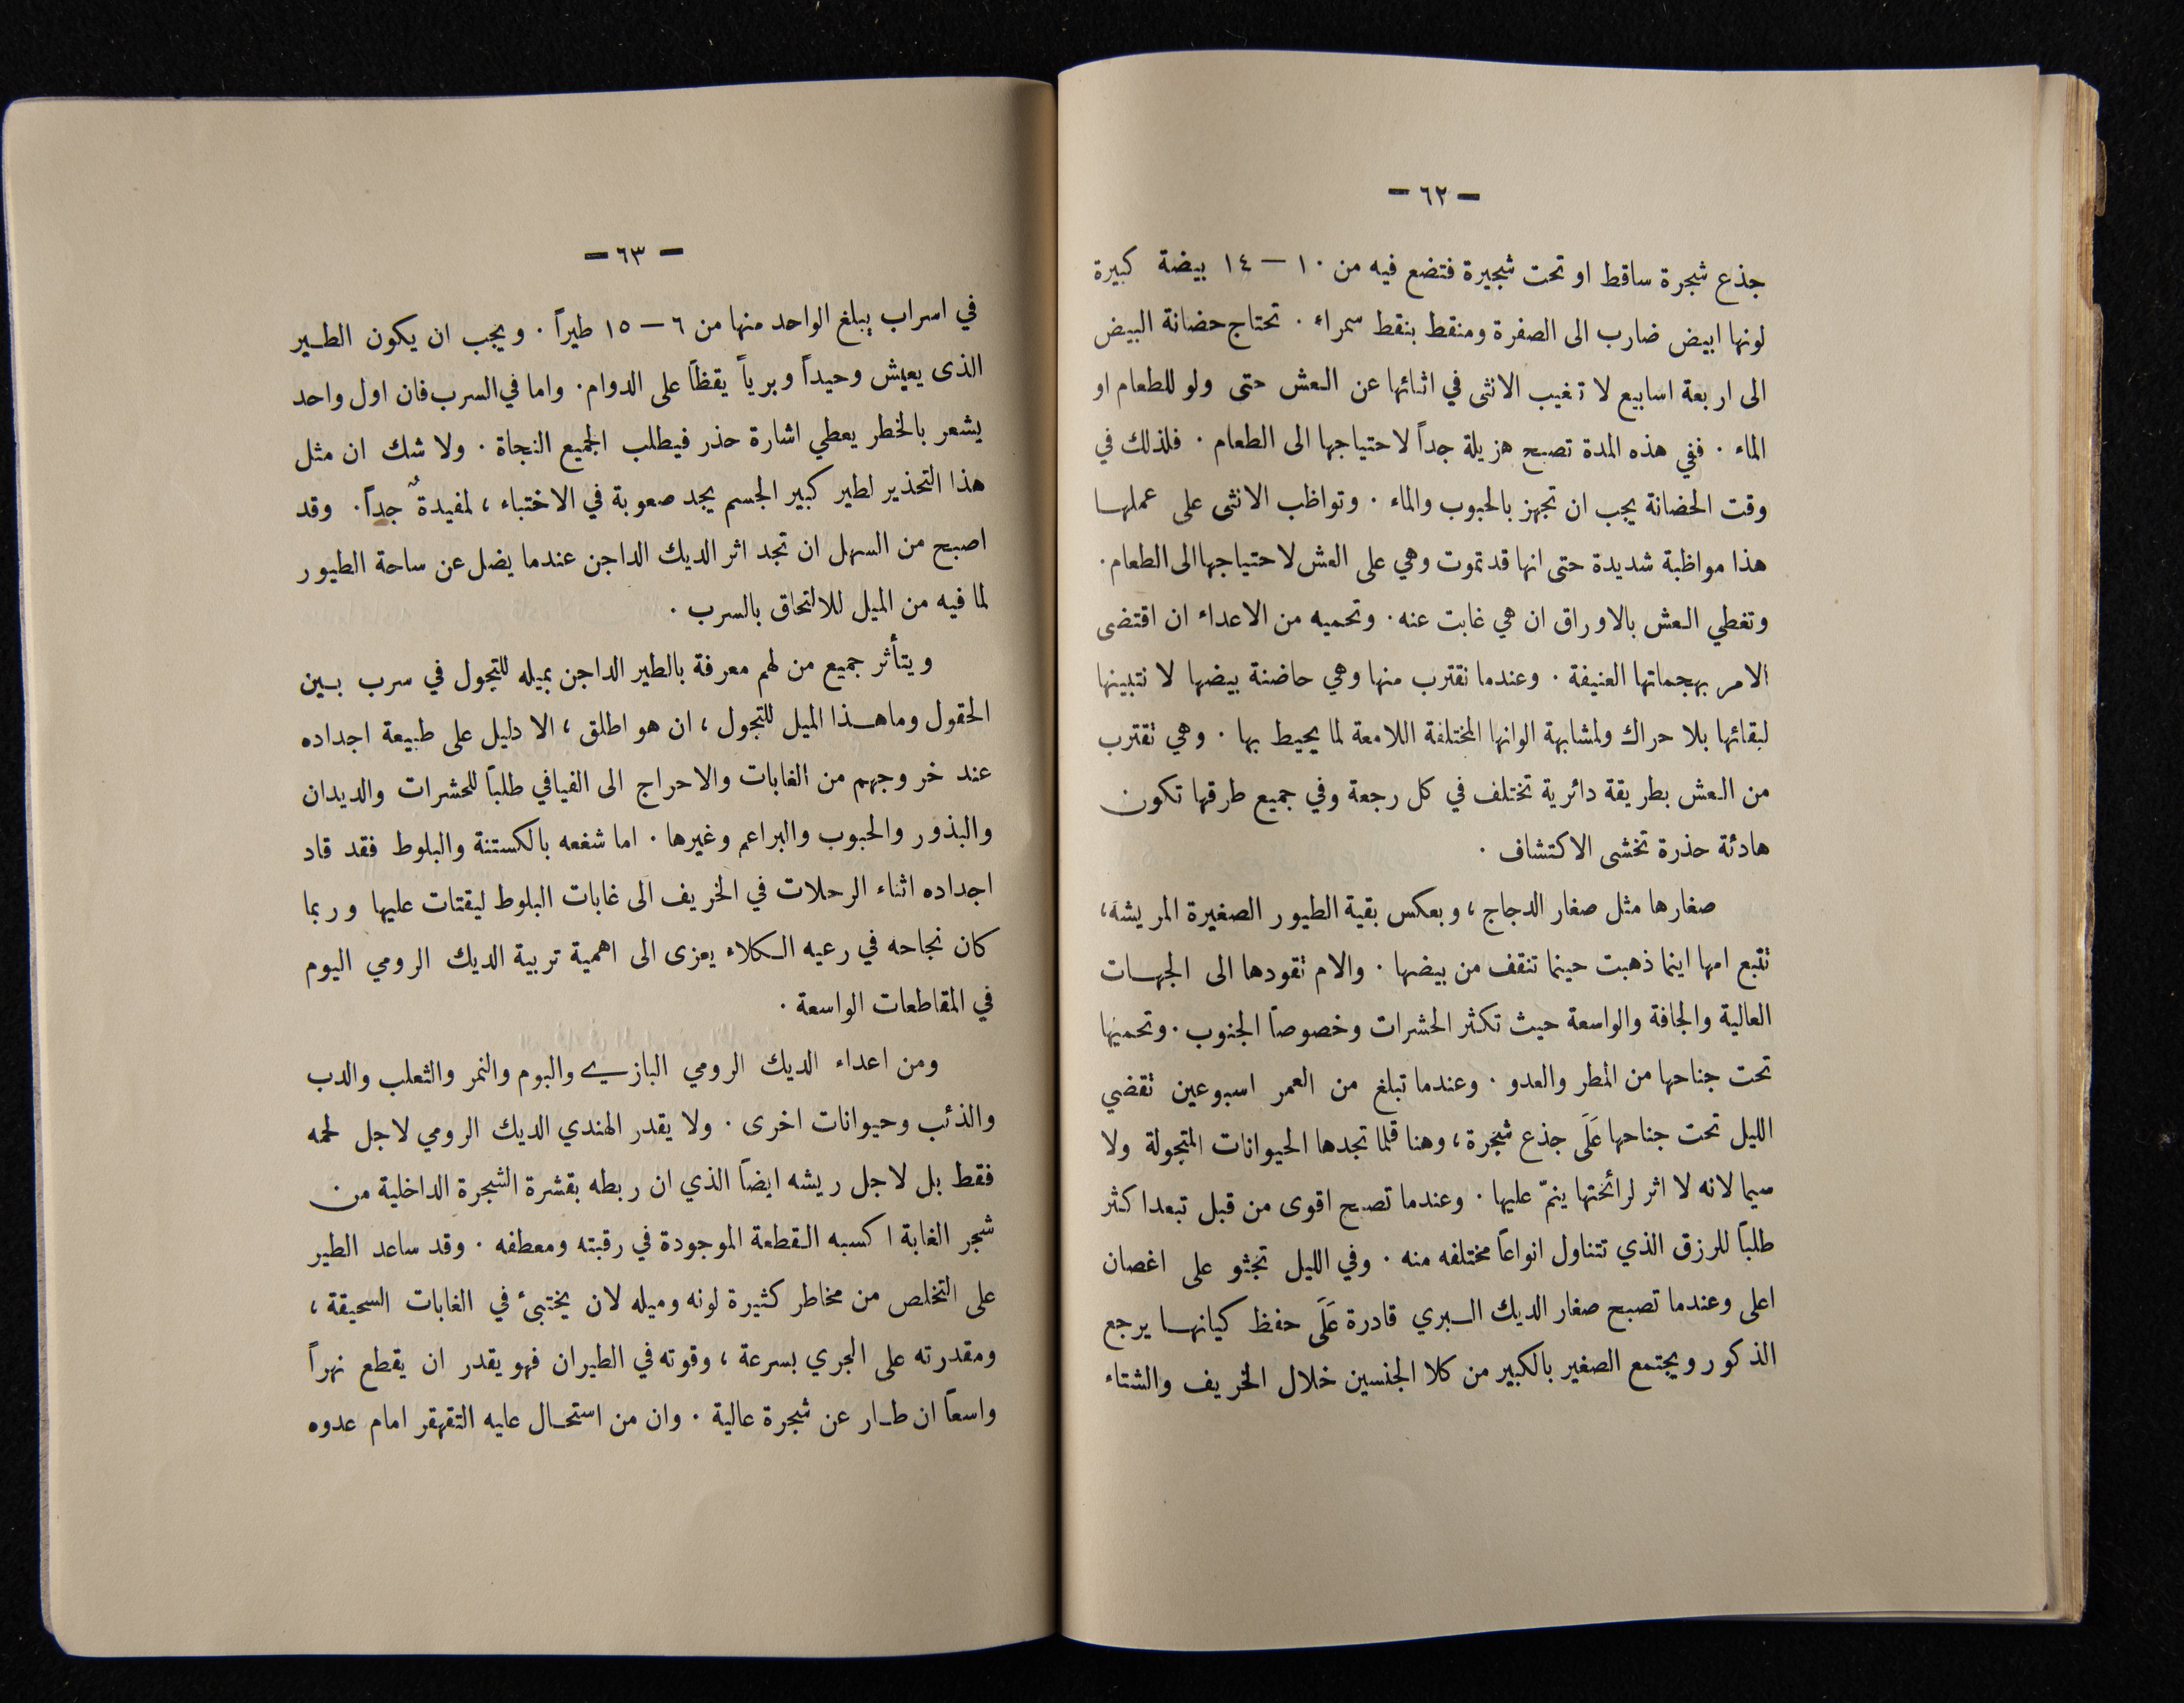 — ٦٢ —
جذع شجرة ساقط او تحت شجيرة فتضع فيه من ١٠ — ١٤ بيضة كبيرة
لونها ابيض ضارب الى الصفرة ومنقط بنقط سمراء . تحتاج حضانة البيض
الى اربعة اسابيع لا تغيب الانثى في اثنائها عن العش حتى ولو للطعام او
الماء . ففي هذه المدة تصبح هزيلة جداً لاحتياجها الى الطعام . فلذلك في
وقت الحضانة يجب ان تجهز بالحبوب والماء . وتواظب الانثى على عملها
هذا مواظبة شديدة حتى انها قد تموت وهي على العش لاحتياجها الى الطعام .
وتغطي العش بالاوراق ان هي غابت عنه . وتحميه من الاعداء ان اقتضى
الامر بهجماتها العنيفة . وعندما نقترب منها وهي حاضنة بيضها لا نتبينها
لبقائها بلا حراك ولمشابهة الوانها المختلفة اللامعة لما يحيط بها . وهي تقترب
من العش بطريقة دائرية تختلف في كل رجعة وفي جميع طرقها تكون
هادئة حذرة تخشى الاكتشاف .
صغارها مثل صغار الدجاج ، وبعكس بقية الطيور الصغيرة المريشة ،
تتبع امها اينما ذهبت حينما تنقف من بيضها . والام تقودها الى الجهات
العالية والجافة والواسعة حيث تكثر الحشرات وخصوصاً الجنوب . وتحميها
تحت جناحها من المطر والعدو . وعندما تبلغ من العمر اسبوعين تقضي
الليل تحت جناحها عَلَى جذع شجرة ، وهنا قلما تجدها الحيوانات المتجولة ولا
سيما لانه لا اثر لرائحتها ينمّ عليها . وعندما تصبح اقوى من قبل تبعد اكثر
طلباً للرزق الذي تتناول انواعاً مختلفه منه . وفي الليل تجثو على اغصان
اعلى وعندما تصبح صغار الديك البري قادرة عَلَى حفظ كيانها يرجع
الذكور ويجتمع الصغير بالكبير من كلا الجنسين خلال الخريف والشتاء
— ٦٣ —
في اسراب يبلغ الواحد منها من ٦ — ١٥ طيراً . ويجب ان يكون الطير
الذى يعيش وحيداً وبرياً يقظاً على الدوام . واما في السرب فان اول واحد
يشعر بالخطر يعطي اشارة حذر فيطلب الجميع النجاة . ولا شك ان مثل
هذا التحذير لطير كبير الجسم يجد صعوبة في الاختباء ، لمفيدةٌ جداً . وقد
اصبح من السهل ان تجد اثر الديك الداجن عندما يضل عن ساحة الطيور
لما فيه من الميل للالتحاق بالسرب .
ويتأثر جميع من لهم معرفة بالطير الداجن بميله للتجول في سرب بين
الحقول وما هذا الميل للتجول ، ان هو اطلق ، الا دليل على طبيعة اجداده
عند خروجهم من الغابات والاحراج الى الفيافي طلباً للحشرات والديدان
والبذور والحبوب والبراعم وغيرها . اما شغفه بالكستنة والبلوط فقد قاد
اجداده اثناء الرحلات في الخريف الى غابات البلوط ليقتات عليها وربما
كان نجاحه في رعيه الكلاء يعزى الى اهمية تربية الديك الرومي اليوم
في المقاطعات الواسعة .
ومن اعداء الديك الرومي البازي والبوم والنمر والثعلب والدب
والذئب وحيوانات اخرى . ولا يقدر الهندي الديك الرومي لاجل لحمه
فقط بل لاجل ريشه ايضاً الذي ان ربطه بقشرة الشجرة الداخلية من
شجر الغابة اكسبه القطعة الموجودة في رقبته ومعطفه . وقد ساعد الطير
على التخلص من مخاطر كثيرة لونه وميله لان يختبئ في الغابات السحيقة ،
ومقدرته على الجري بسرعة ، وقوته في الطيران فهو يقدر ان يقطع نهراً
واسعاً ان طار عن شجرة عالية . وان من استحال عليه التقهقر امام عدوه